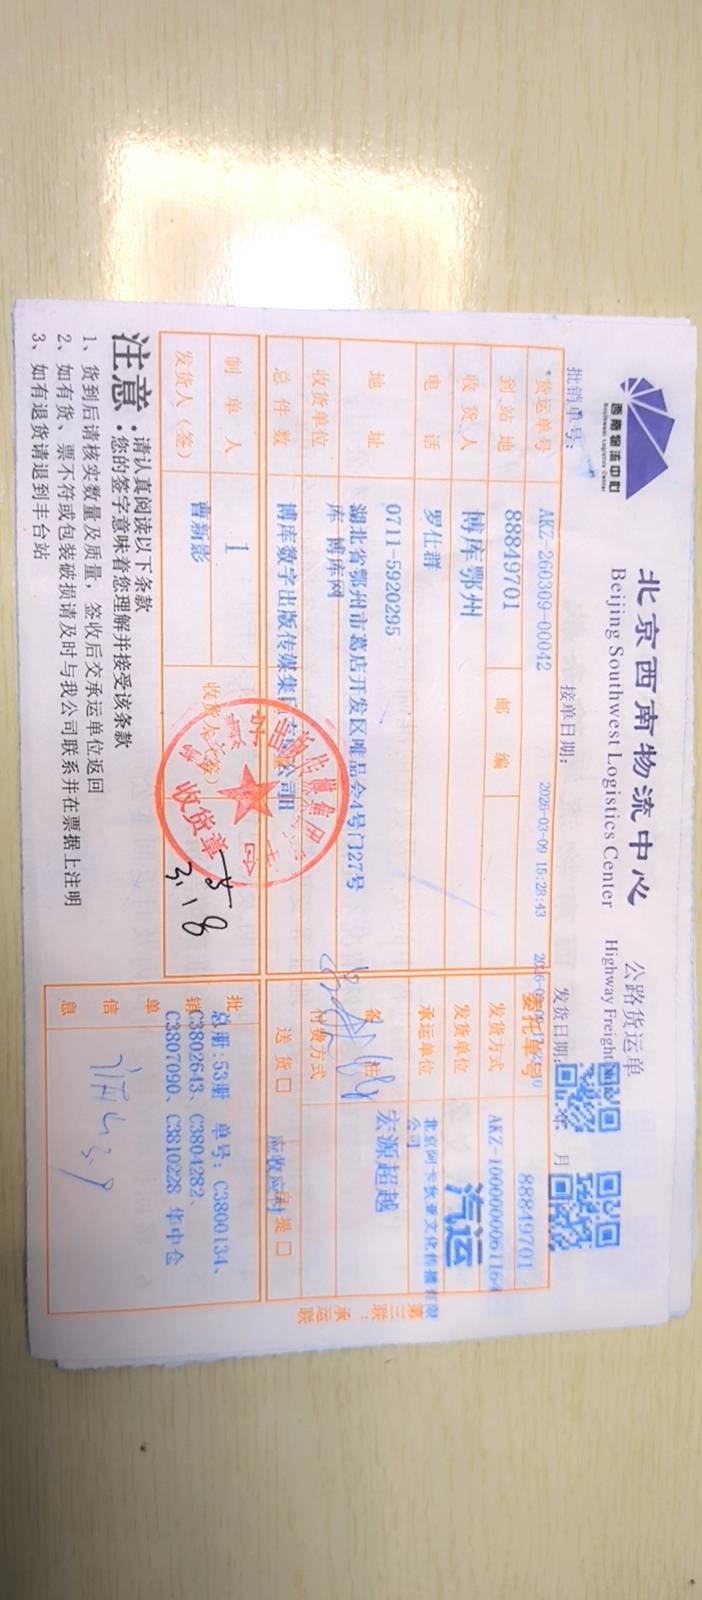 西南物流中心
Southwest Logistics Center
北京西南物流中心 公路货运单
Beijing Southwest Logistics Center Highway Freight
批销单号： 接单日期： 2026-03-09 15:28:43 发货日期： 年 月
货运单号 AKZ-260309-00042 委托单号 88849701
到站地 88849701 邮编 发货方式 AKZ-10000000061164
收货人 博库鄂州 发货单位 汽运
电话 罗仕群 承运单位 北京阿卡狄亚文化传播有限公司
地址 0711-5920295 备注 宏源超越
湖北省鄂州市葛店开发区唯品会4号门27号库 博库网
收货单位 付费方式
总件数 博库数字出版传媒集团有限公司 送货口 自提口 应收应付
制单人 1
发货人（签） 曹新影 收货人（签）
收货章
批销单信息 总册:53册 单号: C3800134、
C3802643、C3804282、
C3807090、C3810228 华中仓
第三联：承运联
注意：请认真阅读以下条款
您的签字意味着您理解并接受该条款
1、货到后请核实数量及质量，签收后交承运单位返回
2、如有货、票不符或包装破损请及时与我公司联系并在票据上注明
3、如有退货请退到丰台站